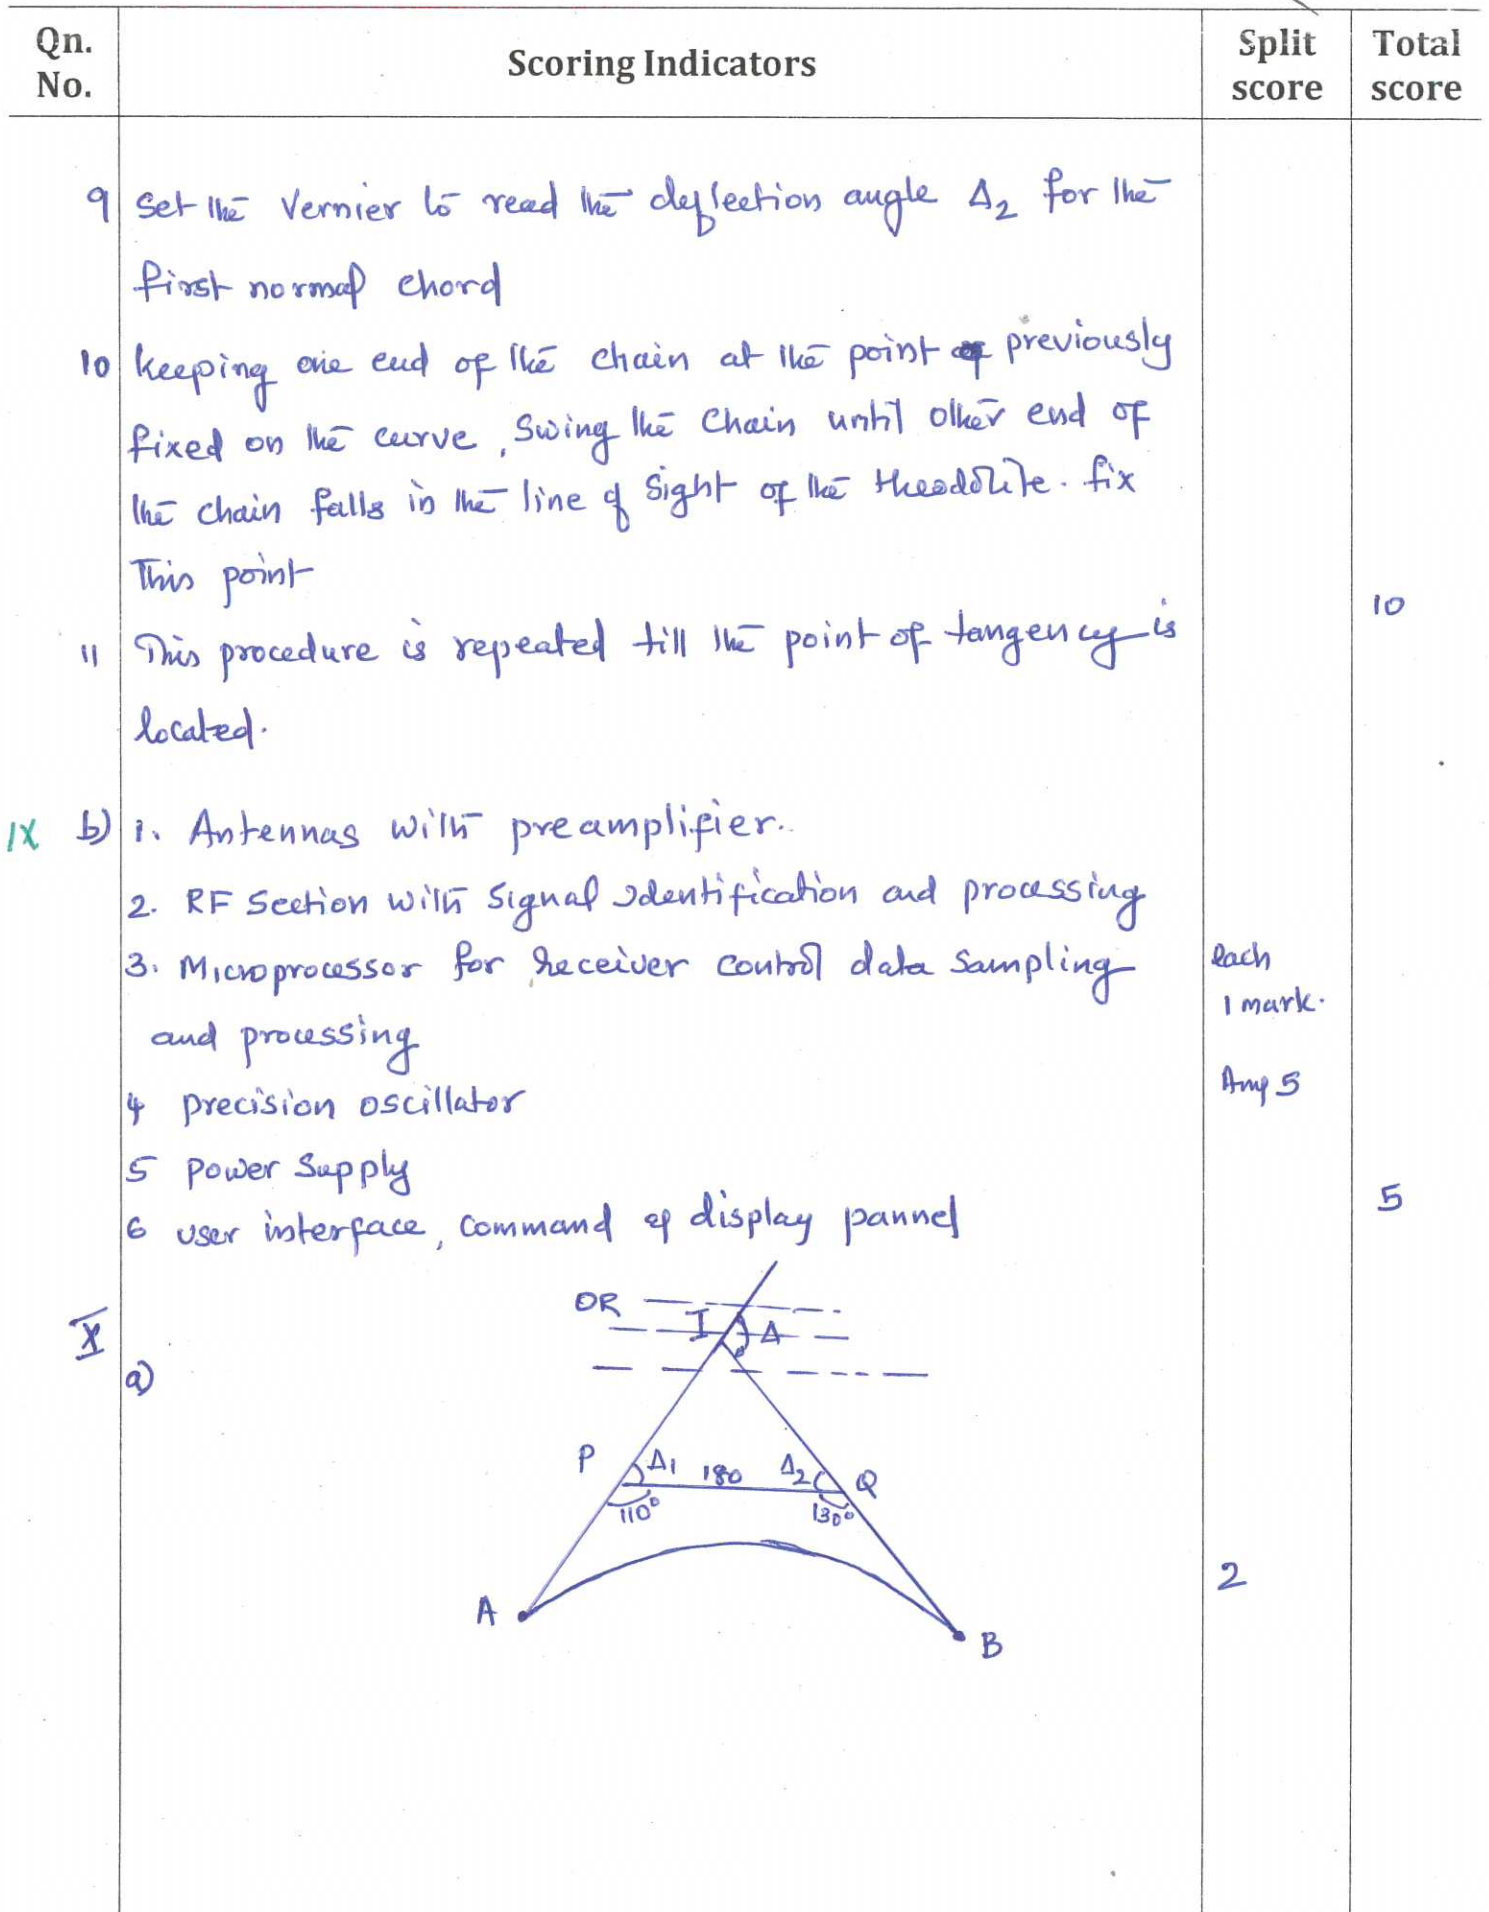 Qn. No. Scoring Indicators Split score Total score
9 Set the Vernier to read the deflection angle Δ2 for the
first normal chord
10 keeping one end of the chain at the point previously
fixed on the curve, Swing the Chain until other end of
the chain falls in the line of Sight of the theodolite. fix
This point
10
11 This procedure is repeated till the point of tangency is
located.
IX b) 1. Antennas with preamplifier.
2. RF Section with Signal Identification and processing
3. Microprocessor for receiver control data Sampling
and processing
each
1 mark.
4 precision oscillator
Any 5
5 Power Supply
6 user interface, Command & display pannel
5
OR
X
a)
I Δ
P Δ1 180 Δ2 Q
110° 130°
2
A
B